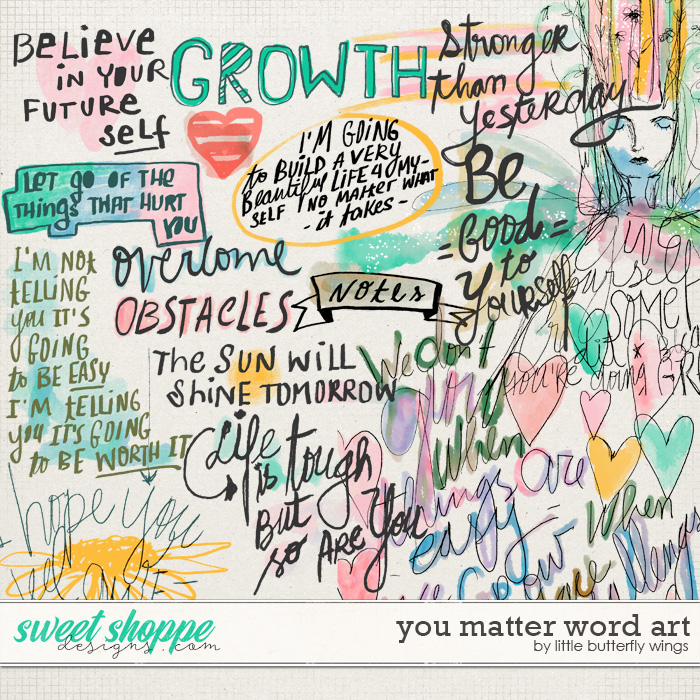 BeLieve
in YOUR
FUTURE
seLf
GROWTH
I'M GOING
to BUILD A VERY
Beautiful LIFE 4 MY-
SELF NO MAtteR WHAT
- it takes -
Stronger
than
yesterday
Be
= Good =
to
YourSelf
Let go of the
things THAT HURT
YOU
I'M NOt
tELLING
you IT'S
GOING
to BE EASY
I'M tELLING
you IT'S GOING
to BE WORTH IT
overcome
OBSTACLES
Notes
The SUN WiLL
SHiNE TOMORROW
Life
is tough
BUt
so ARe You
I hope you
We don't
When
things are
easy
grow
When
SOME
you're doing GR
sweet shoppe
designs.com
you matter word art
by little butterfly wings